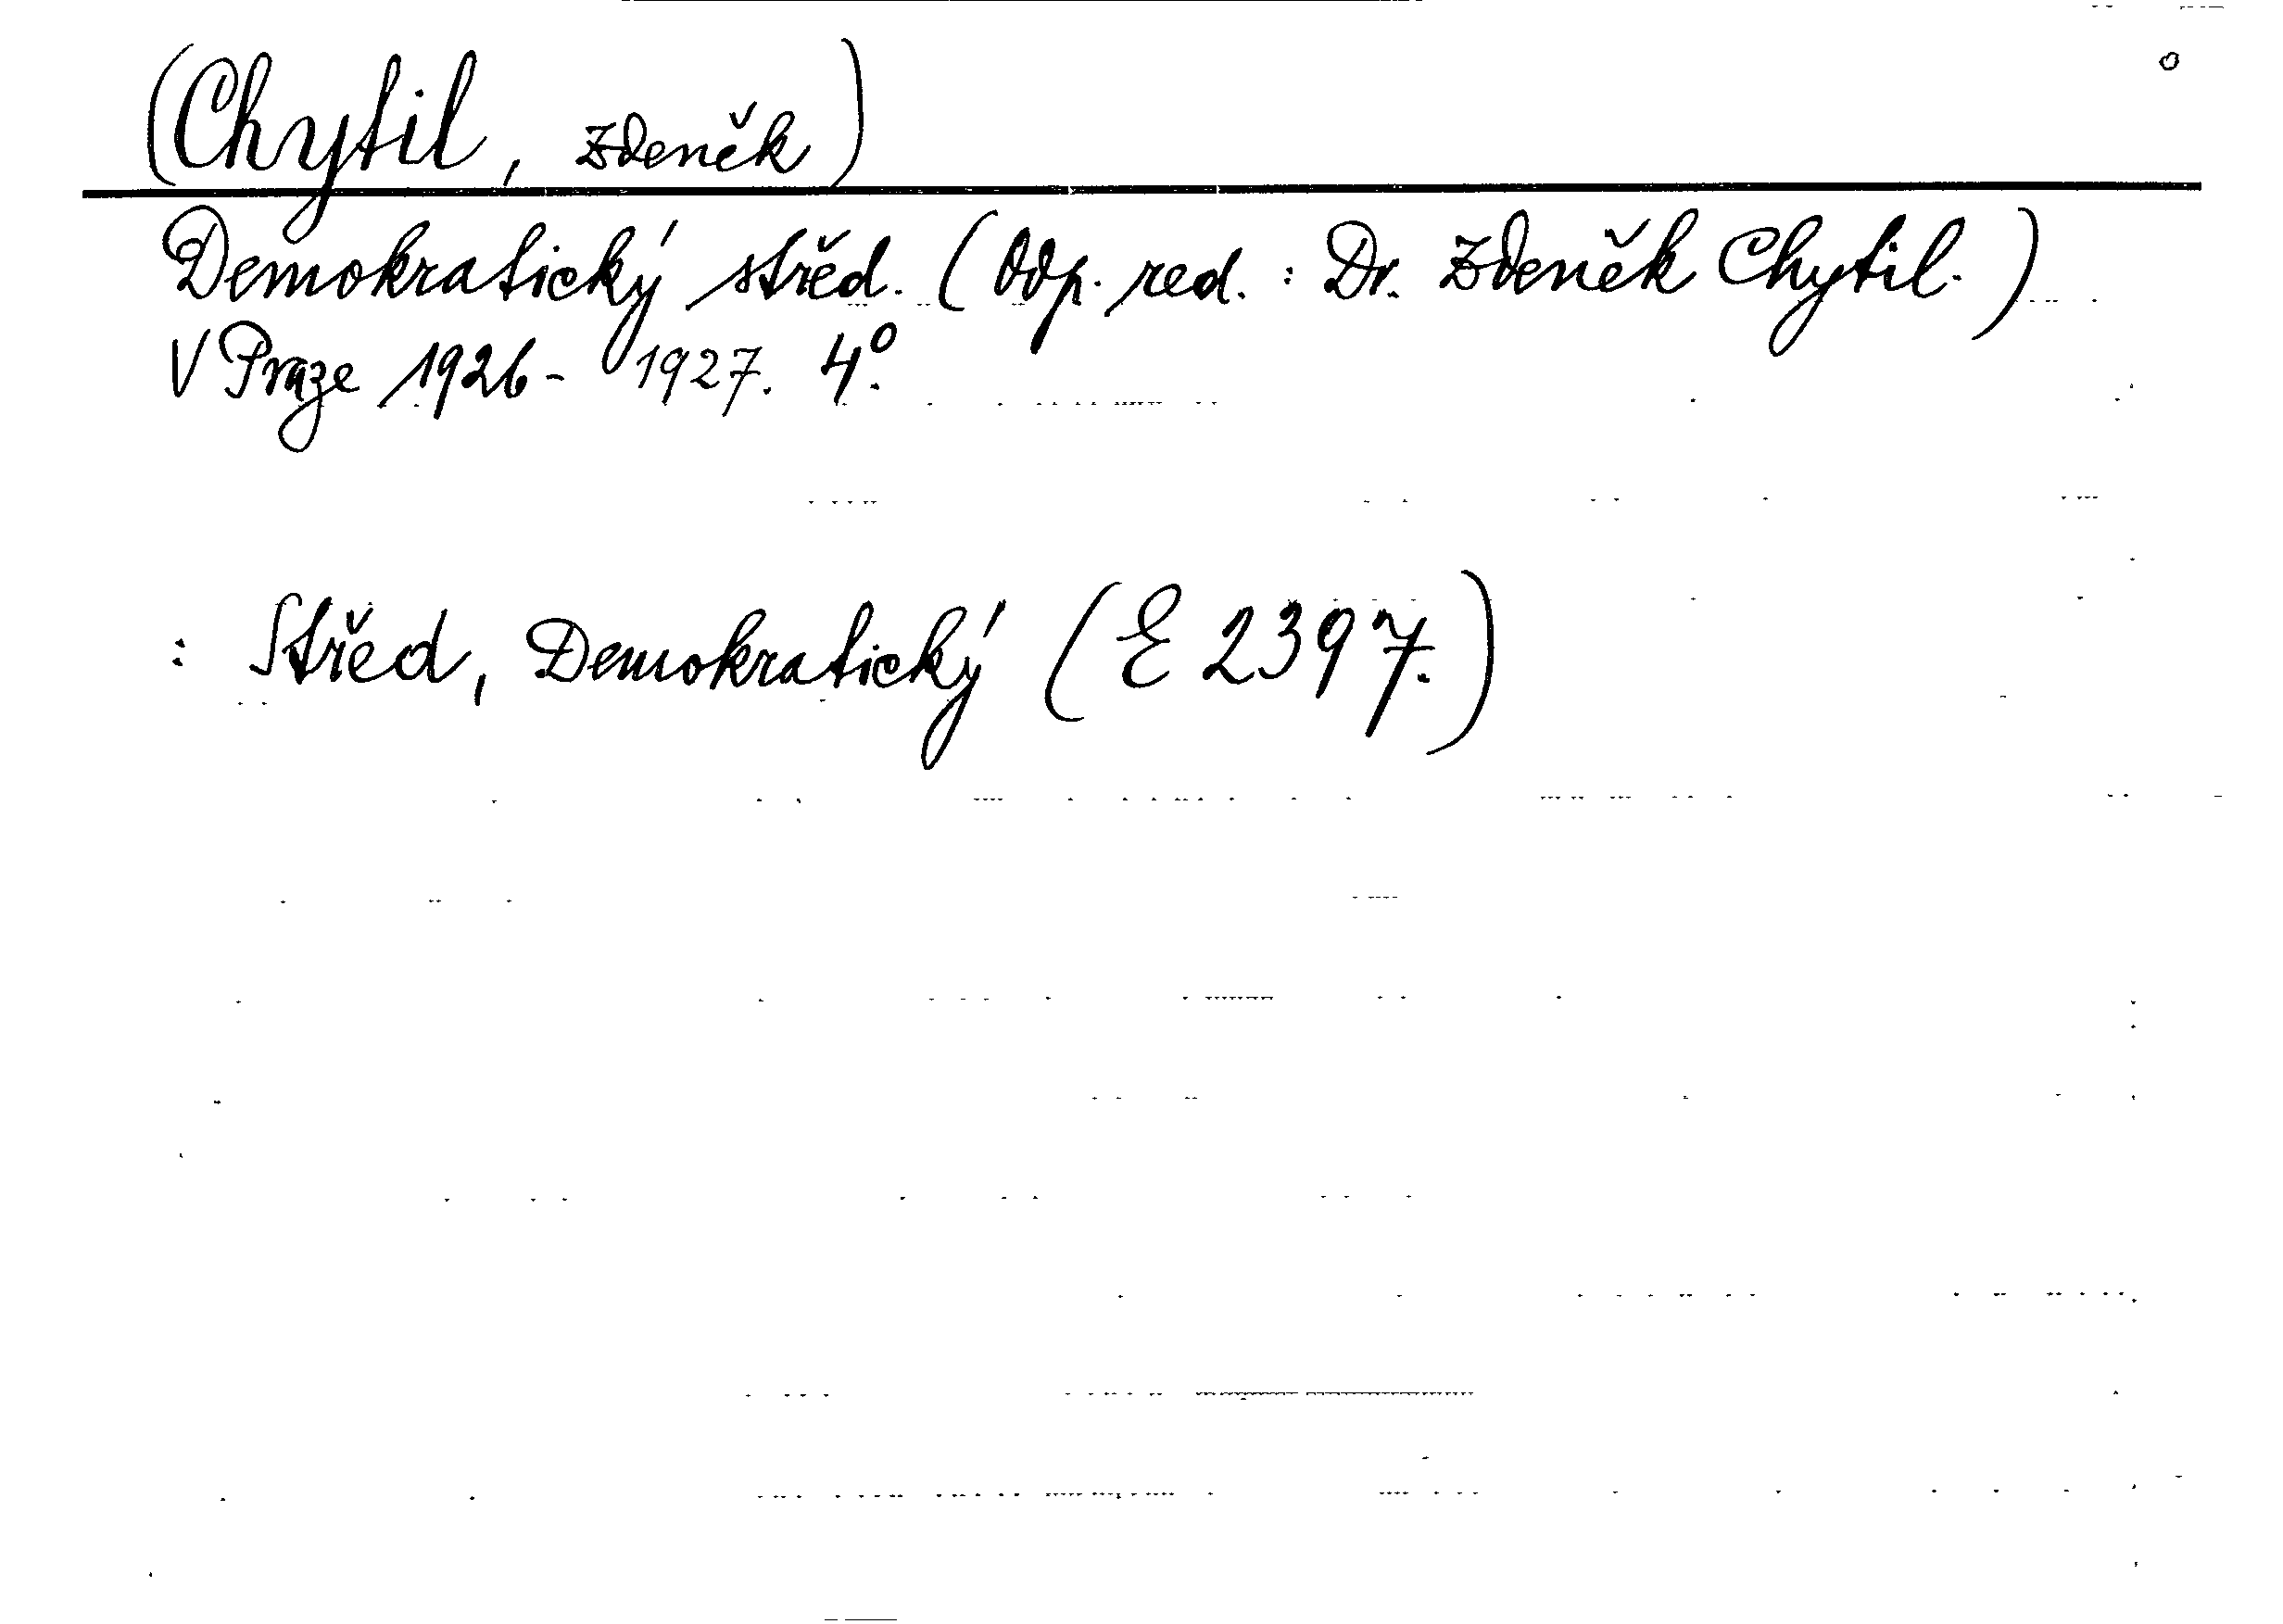 (Chytil, Zdeněk)
Demokratický střed. (Odp. red. : Dr. Zdeněk Chytil.)
V Praze 1926-1927. 4°.
: Střed, Demokratický (E 2397.)